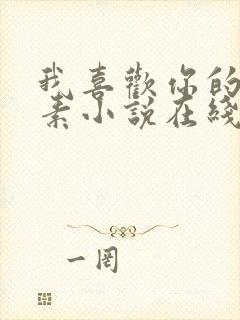 我喜歡你的
素小說在綫
一罔